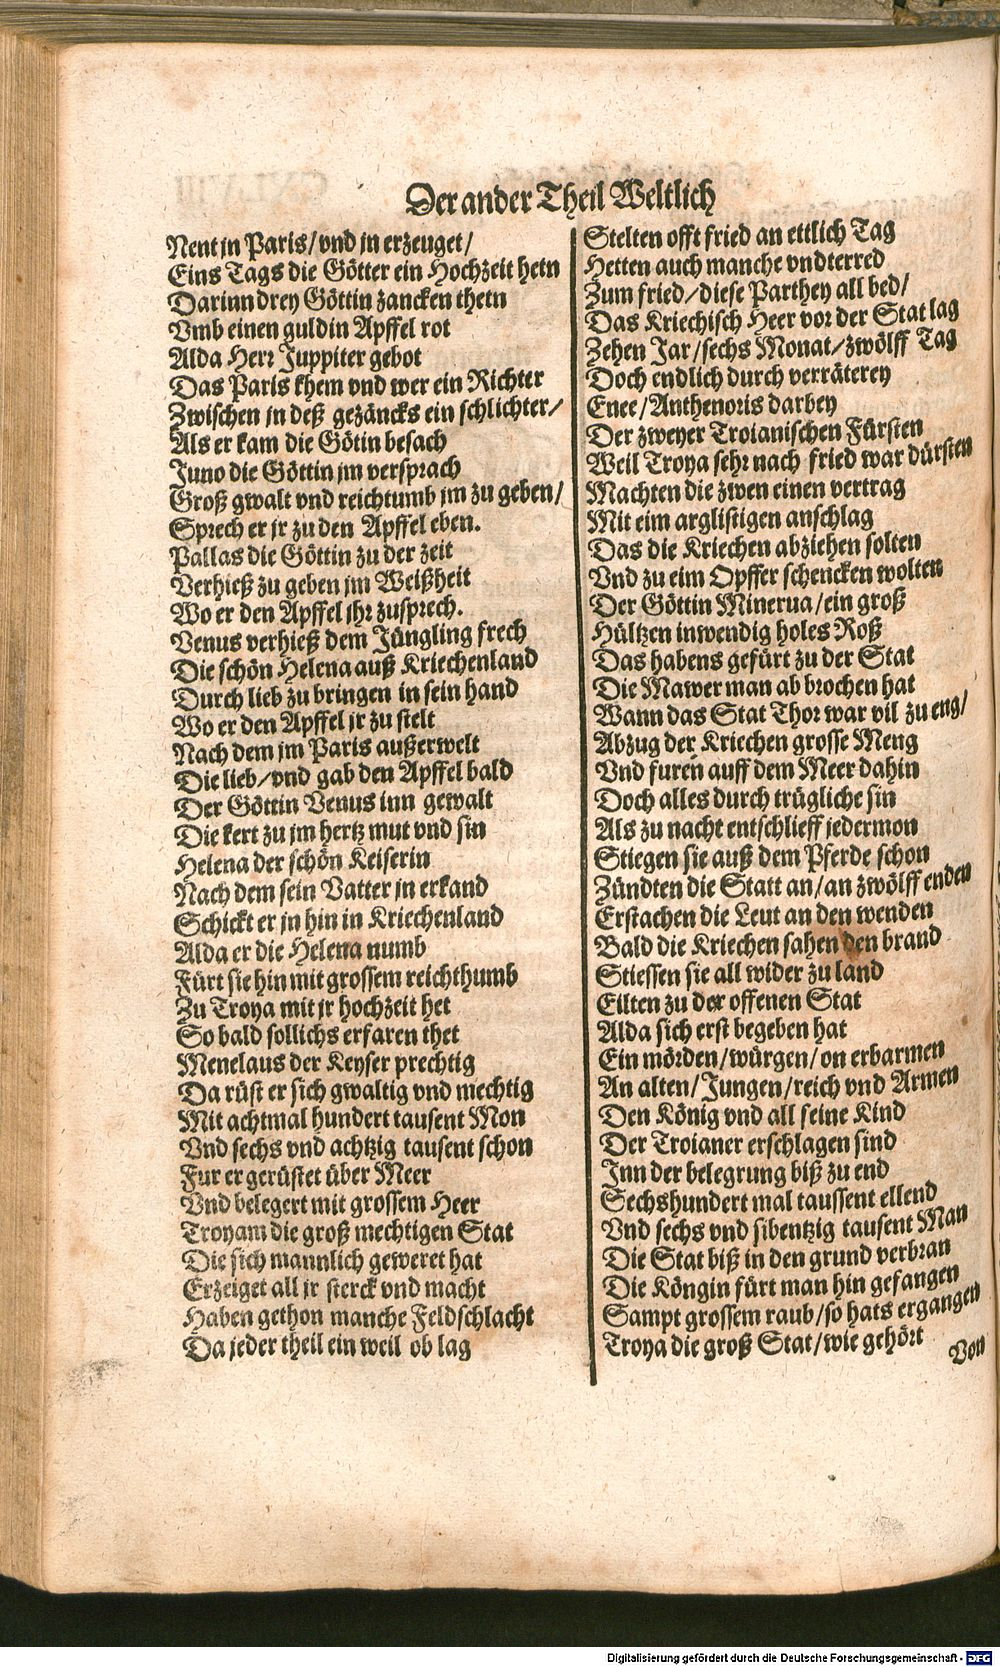 Der ander Theil Weltlich
Nent jn Paris/vnd jn erzeuget/
Eins Tags die Götter ein Hochzeit hetn
Darinn drey Göttin zancken thetn
Vmb einen guldin Apffel rot
Alda Herr Juppiter gebot
Das Paris khem vnd wer ein Richter
Zwischen jn deß gezäncks ein schlichter/
Als er kam die Götin besach
Juno die Göttin jm versprach
Groß gwalt vnd reichtumb jm zu geben/
Sprech er jr zu den Apffel eben.
Pallas die Göttin zu der zeit
Verhieß zu geben jm Weißheit
Wo er den Apffel jhr zusprech.
Venus verhieß dem Jüngling frech
Die schön Helena auß Kriechenland
Durch lieb zu bringen in sein hand
Wo er den Apffel jr zu stelt
Nach dem jm Paris außerwelt
Die lieb/vnd gab den Apffel bald
Der Göttin Venus inn gewalt
Die kert zu jm hertz mut vnd sin
Helena der schön Keiserin
Nach dem sein Vatter jn erkand
Schickt er jn hin in Kriechenland
Alda er die Helena numb
Fürt sie hin mit grossem reichthumb
Zu Troya mit jr hochzeit het
So bald sollichs erfaren thet
Menelaus der Keyser prechtig
Da rüst er sich gwaltig vnd mechtig
Mit achtmal hundert tausent Mon
Vnd sechs vnd achtzig tausent schon
Fur er gerüstet über Meer
Vnd belegert mit grossem Heer
Troyam die groß mechtigen Stat
Die sich mannlich geweret hat
Erzeiget all jr sterck vnd macht
Haben gethon manche Feldschlacht
Da jeder theil ein weil ob lag
Stelten offt fried an ettlich Tag
Hetten auch manche vndterred
Zum fried/diese Parthey all bed/
Das Kriechisch Heer vor der Stat lag
Zehen Jar/sechs Monat/zwölff Tag
Doch endlich durch verräterey
Enee/Anthenoris darbey
Der zweyer Troianischen Fürsten
Weil Troya sehr nach fried war dürsten
Machten die zwen einen vertrag
Mit eim arglistigen anschlag
Das die Kriechen abziehen solten
Vnd zu eim Opffer schencken wolten
Der Göttin Minerua/ein groß
Hültzen inwendig holes Roß
Das habens gefürt zu der Stat
Die Mawer man ab brochen hat
Wann das Stat Thor war vil zu eng/
Abzug der Kriechen grosse Meng
Vnd furen auff dem Meer dahin
Doch alles durch trügliche sin
Als zu nacht entschlieff jedermon
Stiegen sie auß dem Pferde schon
Zündten die Statt an/an zwölff enden
Erstachen die Leut an den wenden
Bald die Kriechen sahen den brand
Stiessen sie all wider zu land
Eilten zu der offenen Stat
Alda sich erst begeben hat
Ein mörden/würgen/on erbarmen
An alten/Jungen/reich vnd Armen
Den König vnd all seine Kind
Der Troianer erschlagen sind
Inn der belegrung biß zu end
Sechshundert mal taussent ellend
Vnd sechs vnd sibentzig tausent Man
Die Stat biß in den grund verbran
Die Köngin fürt man hin gefangen
Sampt grossem raub/so hats ergangen
Troya die groß Stat/wie gehört
Von
Digitalisierung gefördert durch die Deutsche Forschungsgemeinschaft - DFG